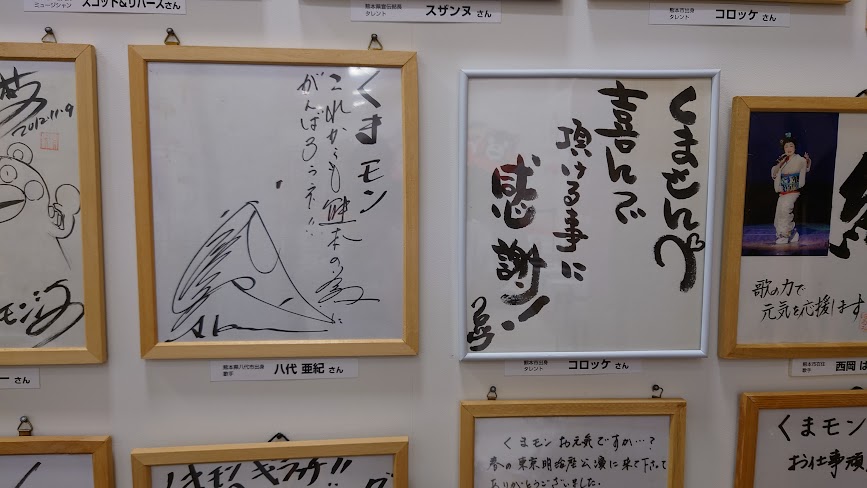 ミュージシャン スコット&リバース さん
熊本県宣伝部長
タレント
スザンヌ さん
熊本市出身
タレント
コロッケ さん
2012.11.9
くまモン
これからも熊本の為に
がんばろうネ!!
熊本県八代市出身
歌手
八代 亜紀 さん
くまさんへ
喜んで
頂ける事に
感謝!
熊本市出身
タレント
コロッケ さん
歌の力で
元気を応援します
熊本市在住
歌手
西岡
ー さん
くまモン
くまモン お元気ですか…?
春の東京明治座公演に来て下さって
ありがとうございました.
くまモン
お仕事頑